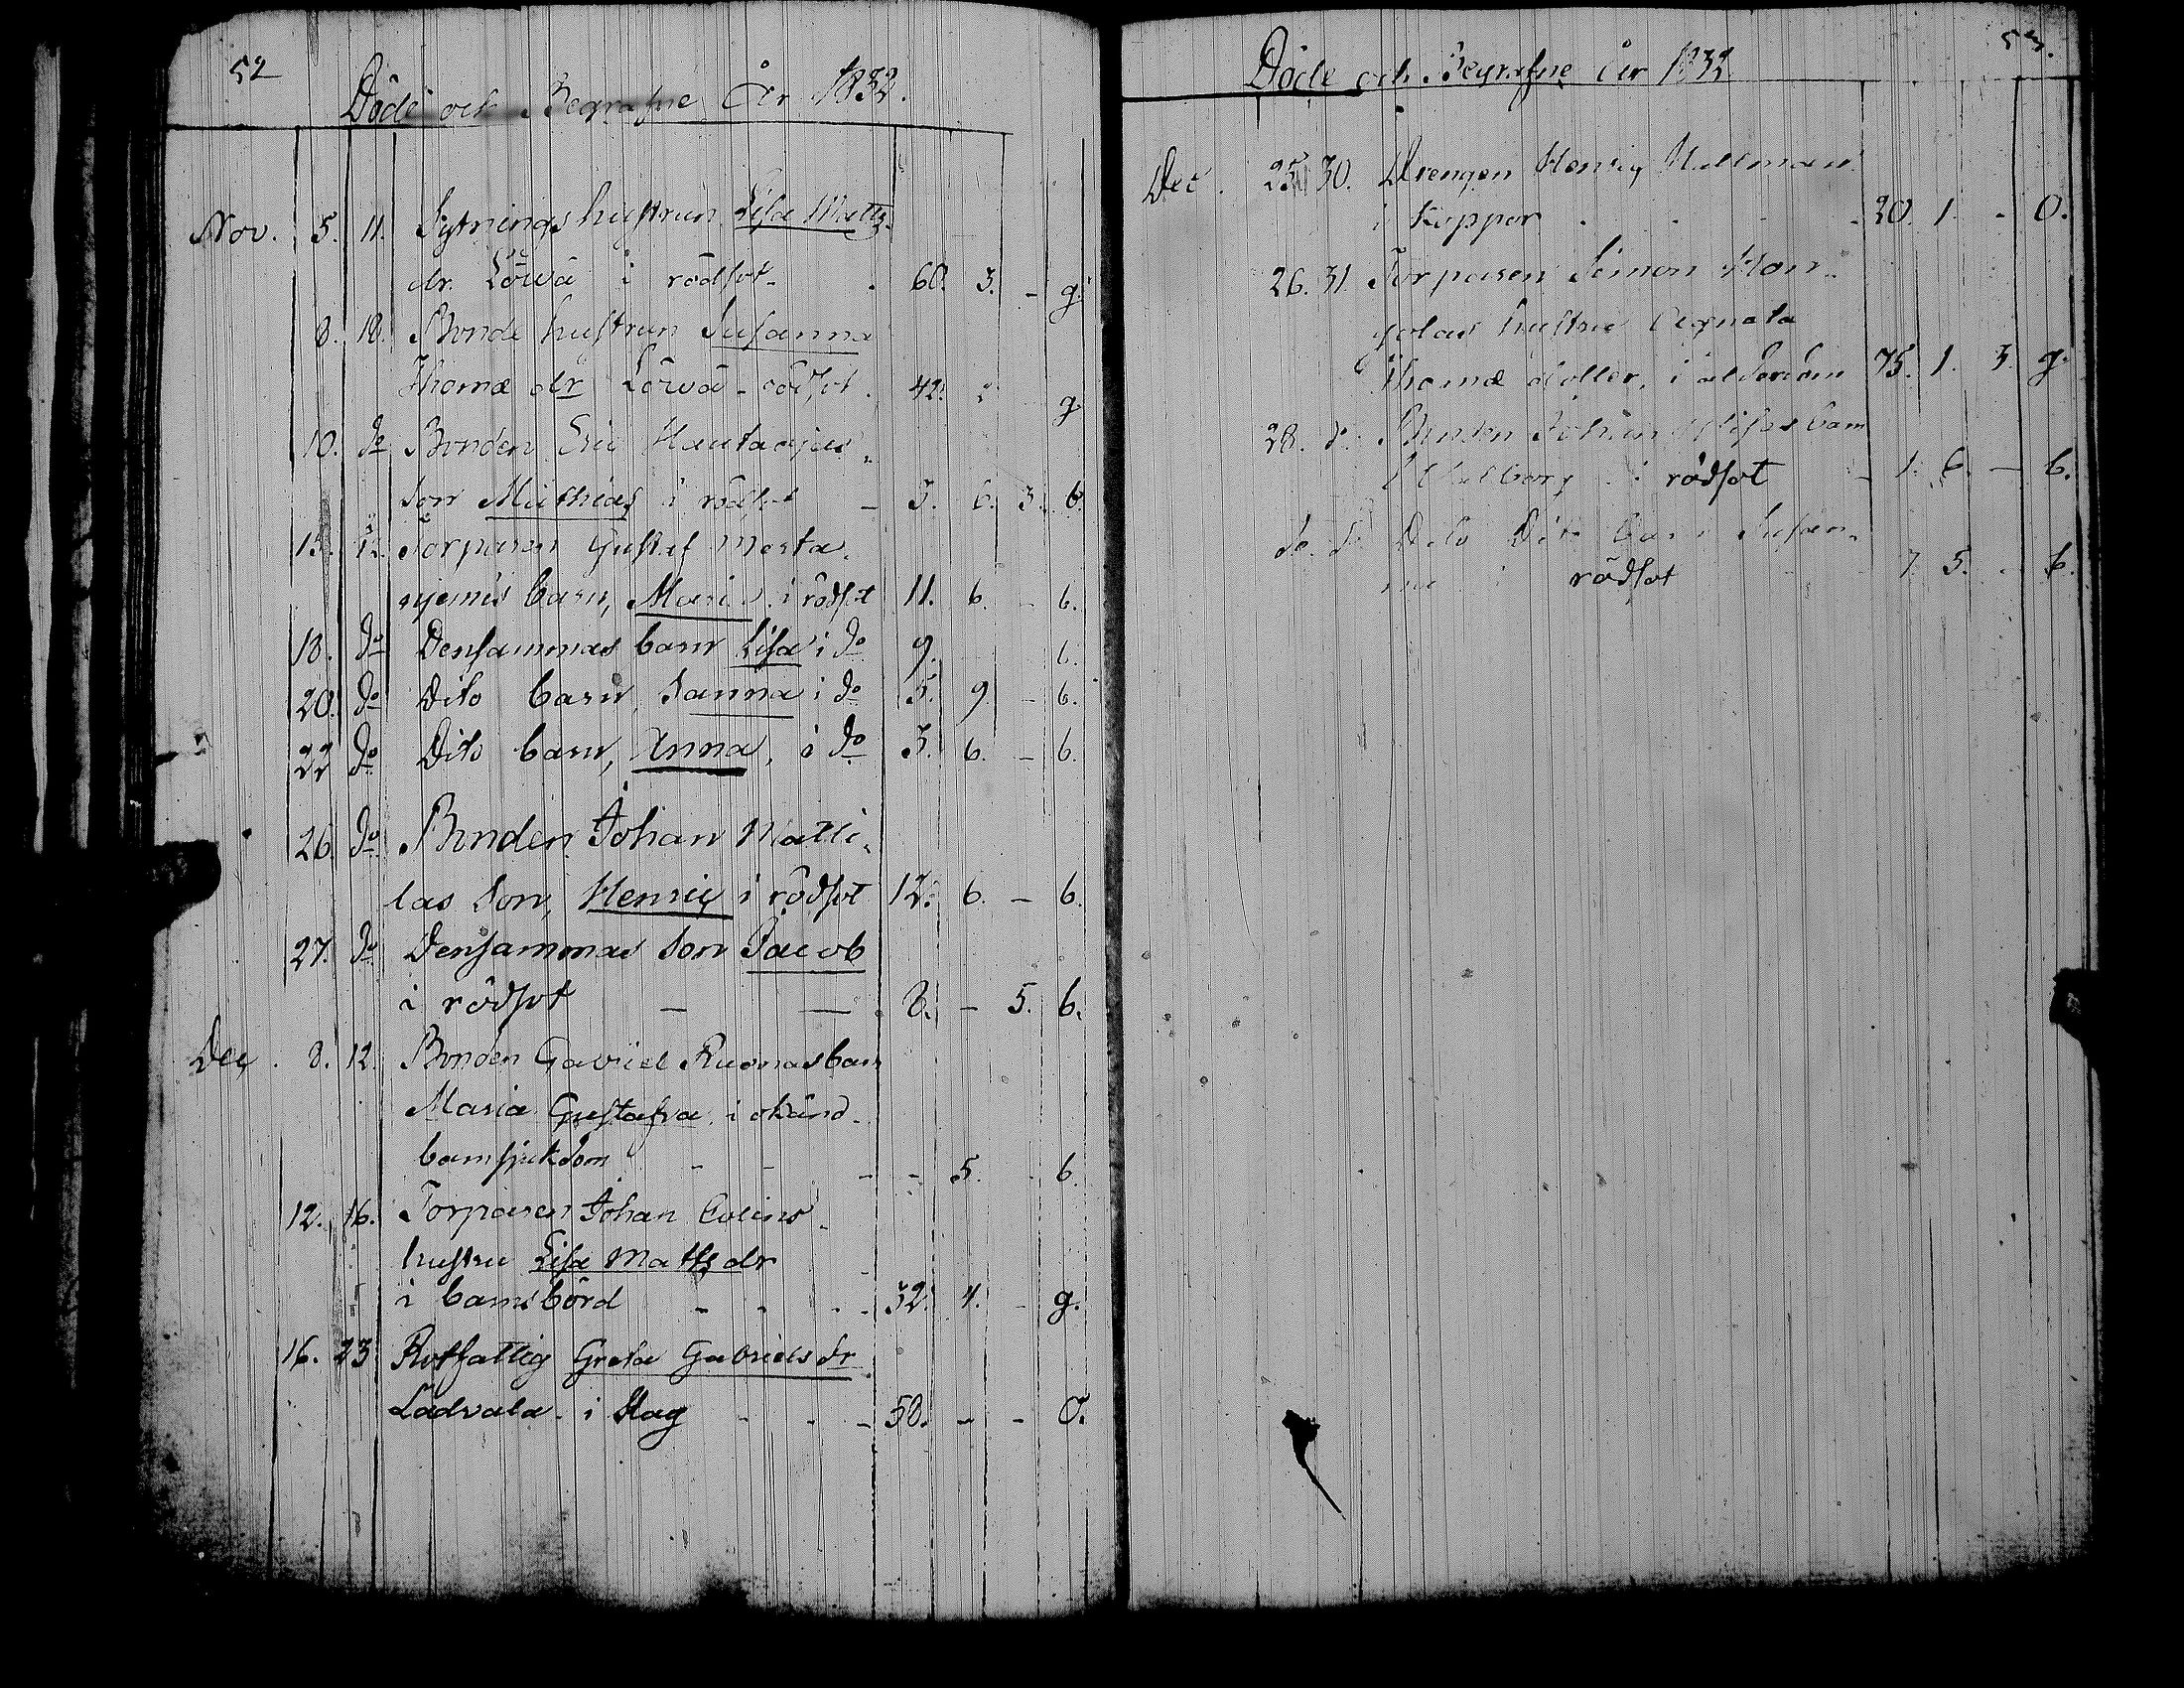 52
Döde och Begrafne År 1832.
Nov. 5. 11. Sytnings hustrun Lisa Matts
dr. Löwä i rödsot - . 60. 3. - g.
8. 18. Bonde hustrun Susanna
Thomæ dr Löwä - rödsot . 42. g
10. do Bonden Eric
son Mathias i rödsot - 3. 6. 3. 6.
15. Torparen Gustaf Mesta
barn, Maria i rödsot 11. 6. - 6.
18. do Densammas barn Lisa i do 9. 6.
20. do Dito barn, Sanna i do 5. 9 - 6.
22 do Dito barn, Anna, i do 3. 6. - 6.
26. do Bonden Johan Matti
las Son, Henric i rödsot 12. 6. - 6.
27. do Densammas Son Jacob
i rödsot - - 8. - 5. 6.
Dec. 8. 12. Bonden Gabriel Ruonas barn
Maria Gustafva, i okänd
barnsjukdom - - - - 5. - 6.
12. 16. Torparen Johan
hustru Lisa Matts dr
i barnsbörd - - - - 32. 4. - g.
16. 23 Rotfattig Greta Gabriels dr
Ladvala - i Slag - - - 58. - - O.
53.
Döde och Begrafne År 1832
Dec. 25. 30. Drengen Henric Hallman
i Koppor - - 20. 1. - O.
26. 31. Torparen Simon Kon-
solas hustru Agneta
Thomæ dotter, i ålderdom 75. 1. 3. g.
28. do Bonden Johan barn
Walborg i rödsot - 1. 6. - 6.
do. do Dito Dito barn Susan-
na i rödsot 7 5. - 6.